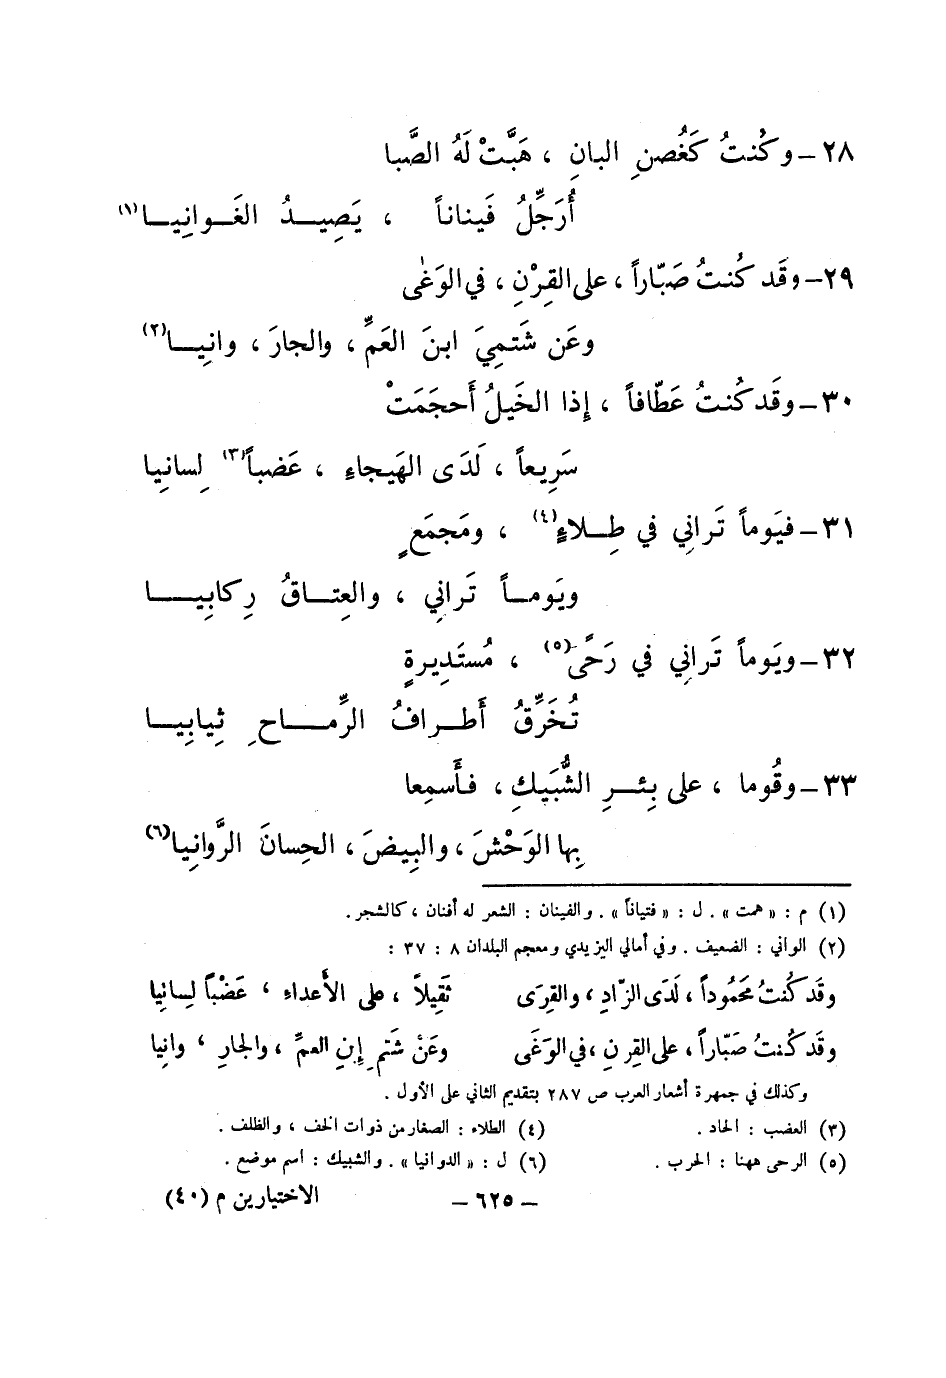 ٢٨ – وكُنتُ كَغُصنِ البانِ ، هَبَّتْ لَهُ الصَّبا
أُرَجِّلُ فَيناناً ، يَصِيـدُ الغَـوانِيـا(١)
٢٩ – وقَد كُنتُ صَبّاراً ، على القِرْنِ ، في الوَغَى
وعَن شَتمِيَ ابنَ العَمِّ ، والجارَ ، وانِيـا(٢)
٣٠ – وقَد كُنتُ عَطّافاً ، إذا الخَيلُ أَحجَمَتْ
سَرِيعاً ، لَدَى الهَيجاءِ ، عَضباً(٣) لِسانِيا
٣١ – فيَوماً تَراني في طِـلاءٍ(٤) ، ومَجمَعٍ
ويَومـاً تَرانِي ، والعِتـاقُ رِكابِيـا
٣٢ – ويَوماً تَراني في رَحًى(٥) ، مُستَدِيرةٍ
تُخَرِّقُ أَطـرافُ الرِّمـاحِ ثِيابِيـا
٣٣ – وقُوما ، على بِئـرِ الشُّبَيكِ ، فأَسمِعا
بِها الوَحْشَ ، والبِيضَ ، الحِسانَ الرَّوانِيا(٦)
(١) م : « همت » . ل : « فتياناً » . والفينان : الشعر له أفنان ، كالشجر .
(٢) الواني : الضعيف . وفي أمالي اليزيدي ومعجم البلدان ٨ : ٣٧ :
وقَد كُنتُ مَحمُوداً ، لَدَى الزّادِ ، والقِرَى ثَقِيلاً ، على الأَعداءِ ، عَضْباً لِسانِيا
وقَد كُنتُ صَبّاراً ، على القِرنِ ، في الوَغَى وعَنْ شَتمِ إبنِ العمِّ ، والجارِ ، وانِيا
وكذلك في جمهرة أشعار العرب ص ٢٨٧ بتقديم الثاني على الأول .
(٣) العضب : الحاد . (٤) الطلاء : الصغار من ذوات الخف ، والظلف .
(٥) الرحى ههنا : الحرب . (٦) ل : « الدوانيا » . والشبيك : اسم موضع .
– ٦٢٥ – الاختيارين م (٤٠)